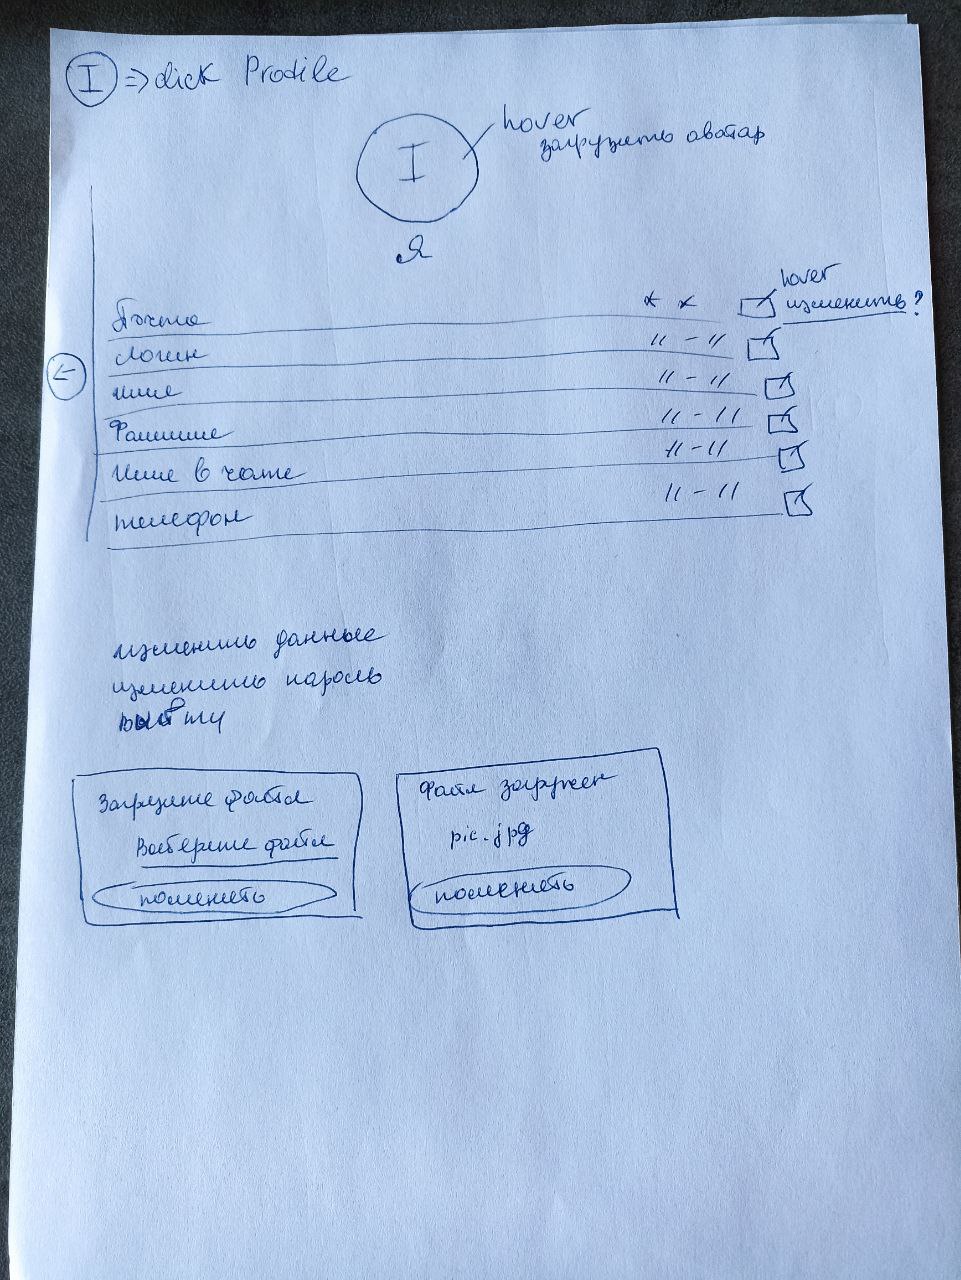 I => click Profile
hover
загрузить аватар
I
Я
hover
изменить?
Почта * *
Логин " - "
имя " - "
Фамилия " - "
Имя в чате " - "
телефон " - "
←
изменить данные
изменить пароль
выйти
Загрузите файл
Выберите файл
поменять
Файл загружен
pic.jpg
поменять